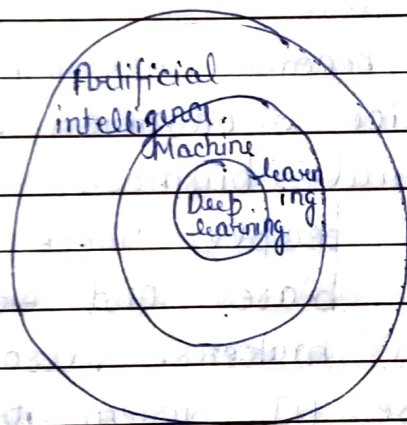 Artificial
intelligence.
Machine
learn
ing
Deep
learning